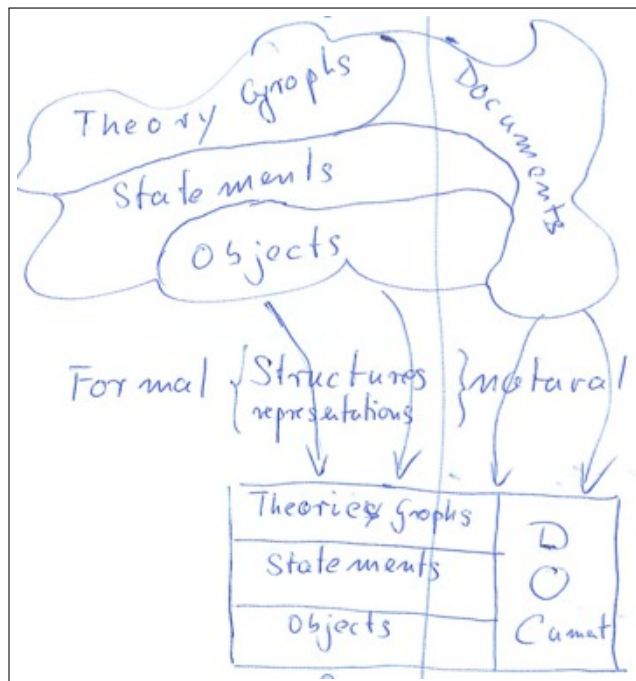 Theory Graphs
Documents
Statements
Objects
Formal { Structures } natural
{ representations
Theories graphs
Statements
Objects
D
O
Cumat